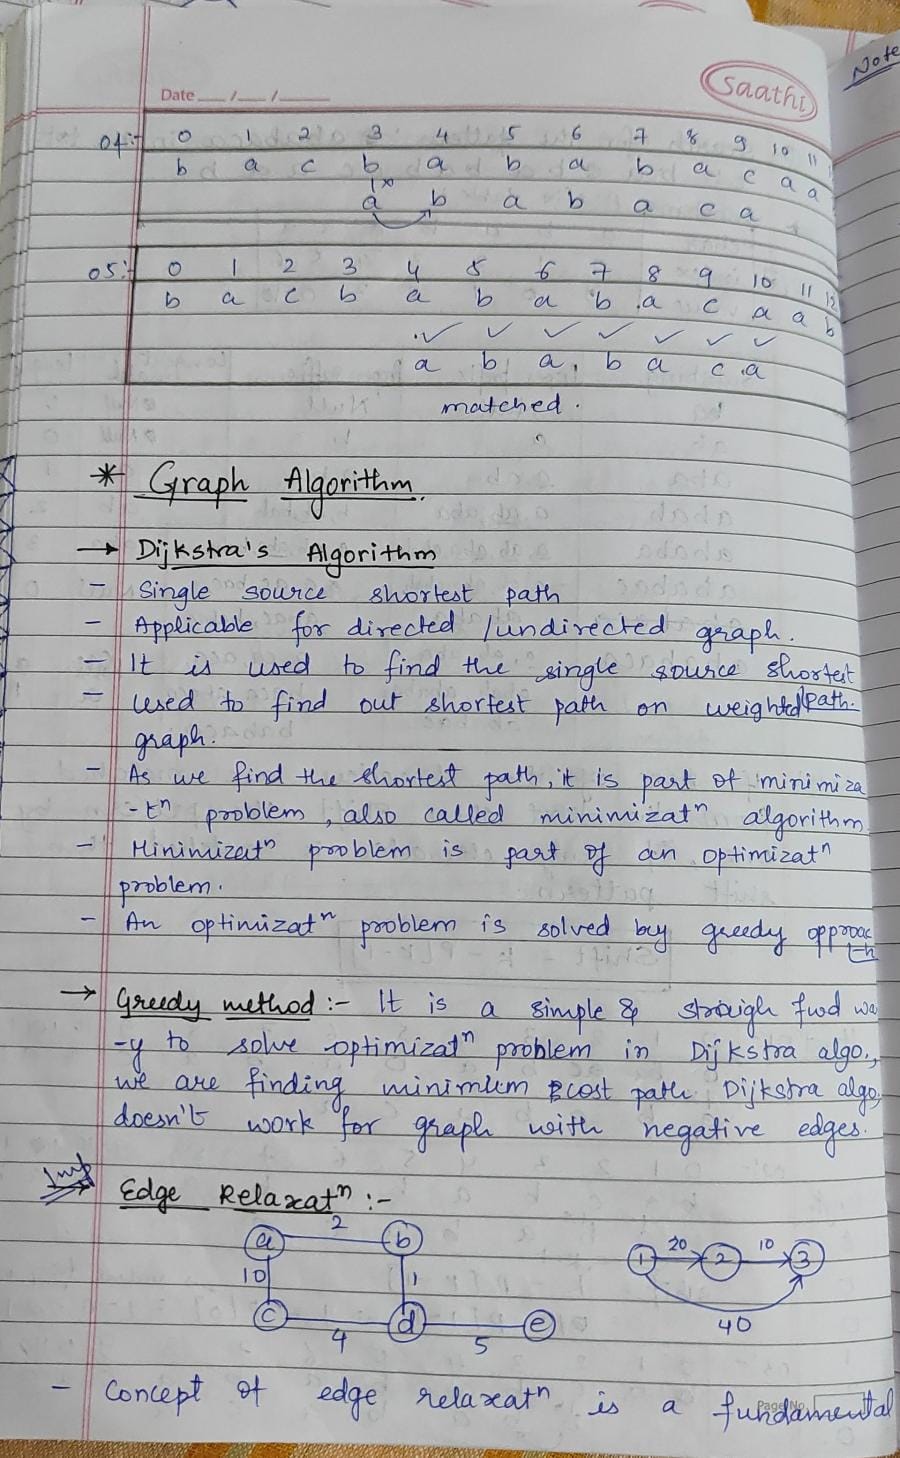 Note
Date __/__/____
Saathi
04:- 0 1 2 3 4 5 6 7 8 9 10 11
b a c b a b a b a c a a
1x
a b a b a c a
05:- 0 1 2 3 4 5 6 7 8 9 10 11 12
b a c b a b a b a c a a b
✓ ✓ ✓ ✓ ✓ ✓ ✓
a b a b a c a
matched.
* Graph Algorithm.
→ Dijkstra's Algorithm
- Single source shortest path
- Applicable for directed /undirected graph.
- It is used to find the single source shortest
path.
- used to find out shortest path on weighted
graph.
- As we find the shortest path, it is part of minimiza
-tⁿ problem, also called minimizatⁿ algorithm
- Minimizatⁿ problem is part of an optimizatⁿ
problem.
- An optimizatⁿ problem is solved by greedy approac
h
→ Greedy method :- It is a simple & straigh fwd wa
-y to solve optimizatⁿ problem in Dijkstra algo.,
we are finding minimum cost path. Dijkstra algo.
doesn't work for graph with negative edges.
Imp
→ Edge Relaxatⁿ :-
a 2 b
10 1
c 4 d 5 e
1 20 2 10 3
40
- Concept of edge relaxatⁿ is a fundamental
Page No.